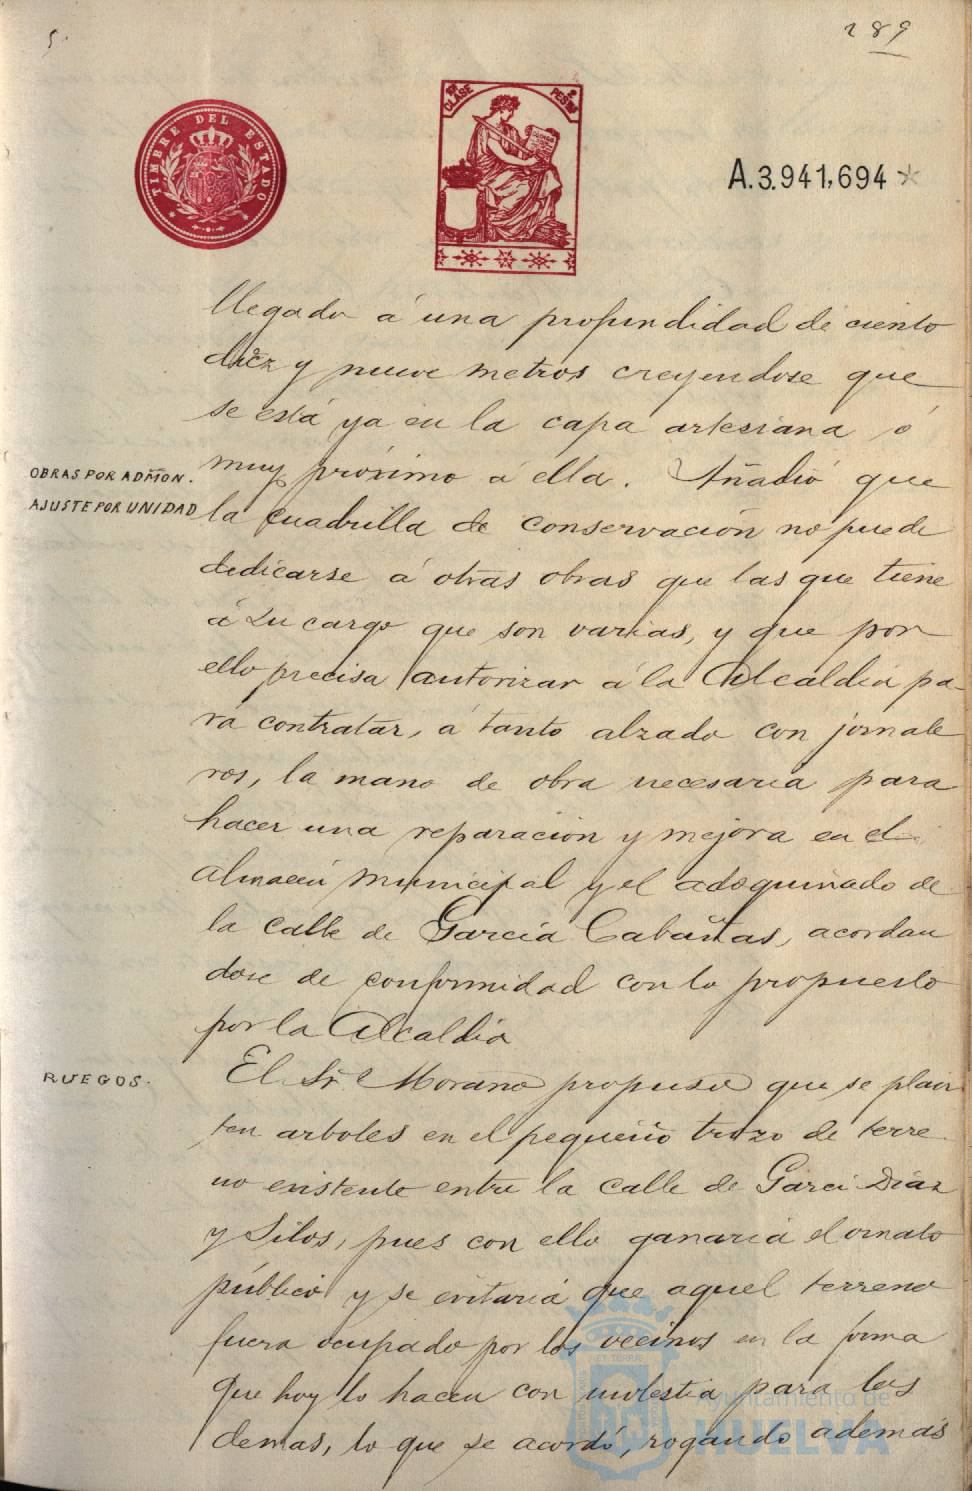 5.
289
TIMBRE DEL ESTADO
CLASE
2 PESETAS
A.3.941.694 *
llegado á una profundidad de ciento
diez y nueve metros creyendose que
se está ya en la capa artesiana ó
muy próximo á ella. Añadió que
OBRAS POR ADMÓN.
AJUSTE POR UNIDAD
la cuadrilla de conservación no puede
dedicarse á otras obras que las que tiene
á su cargo que son varias, y que por
ello precisa autorizar á la Alcaldía pa-
ra contratar, á tanto alzado con jornale
ros, la mano de obra necesaria para
hacer una reparación y mejora en el
almacén municipal y el adoquinado de
la calle de García Cabañas, acordan
dose de conformidad con lo propuesto
por la Alcaldía
RUEGOS.
El Sr. Morano propuso que se plan
ten arboles en el pequeño trozo de terre
no existente entre la calle de Garci-Díaz
y Silos, pues con ello ganaría el ornato
público y se evitaría que aquel terreno
fuera ocupado por los vecinos en la forma
que hoy lo hacen con molestia para los
demas, lo que se acordó, rogando además
Ayuntamiento de
HUELVA